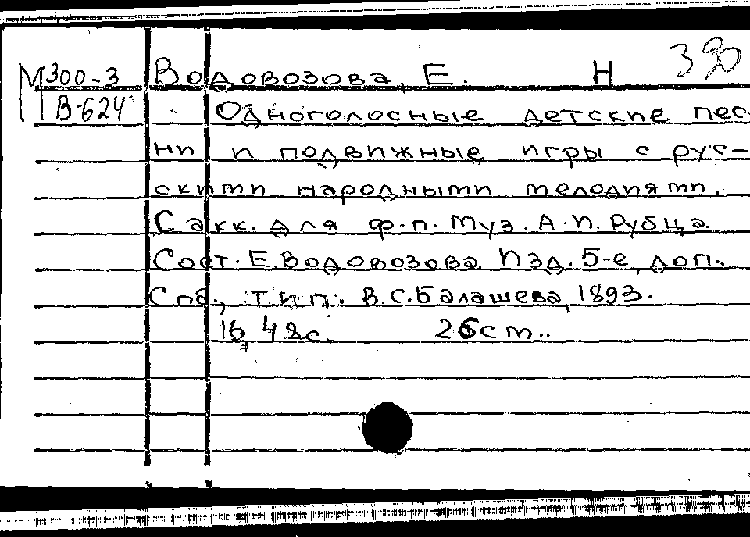 М300-3 Водовозова, Е. Н 390
В-624 Одноголосные детские пес
ни и подвижные игры с рус-
скими народными мелодиями.
С акк. для ф.п. Муз. А.И. Рубца
Сост. Е. Водовозова Изд. 5-е, доп.
Спб., тип. В.С. Балашева, 1893.
16, 42с. 26см.